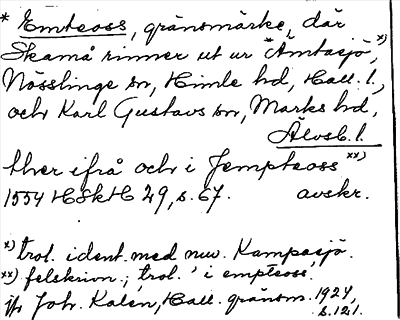 * Emteoss, gränsmärke, där
Skamå rinner ut ur *Ämtasjö, x)
Nösslinge sn, Himle hd, Hall. l.,
och Karl Gustavs sn, Marks hd,
Älvsb. l.
ther ifrå och i Jempteoss xx)
1554 HSkH 29, s. 67. avskr.
x) trol. ident. med nuv. Kampasjö.
xx) felskrivn.; trol. i empteoss.
jfr Joh. Kalén, Hall. gränsm. 1924,
s. 121.